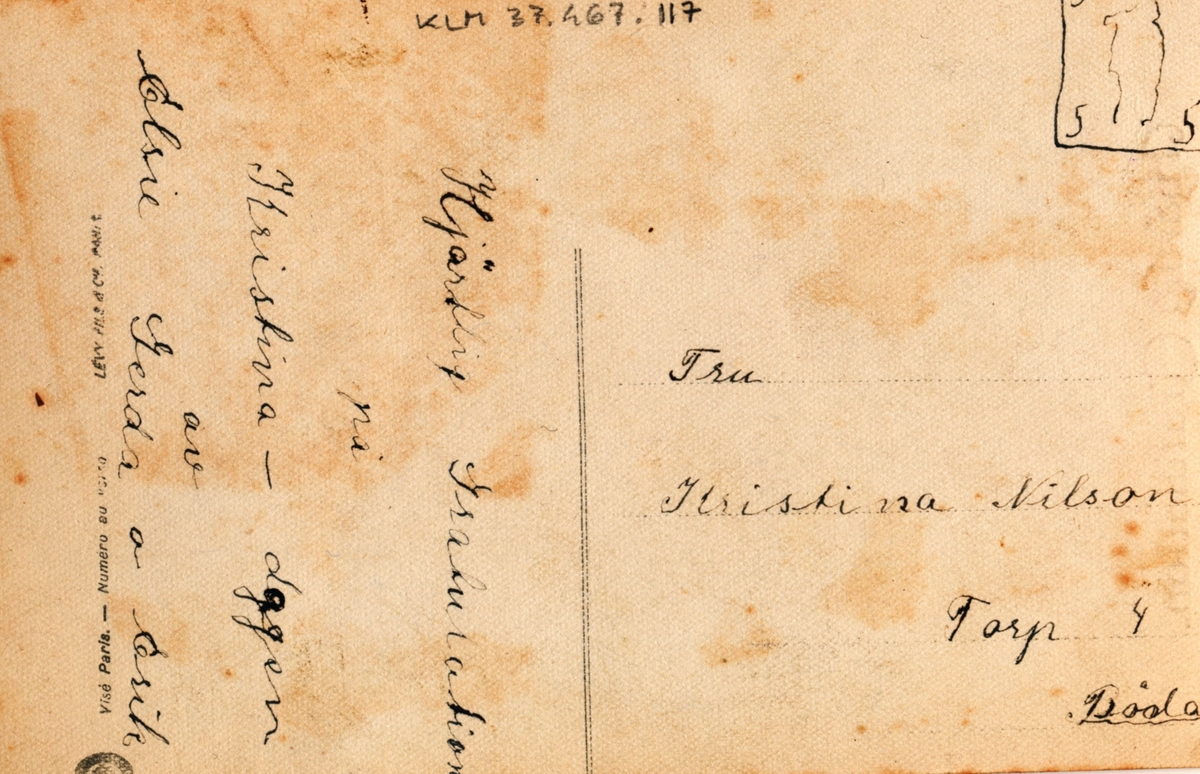 KLM 37.467.117
Hjärtlig Gratulation
på
Kristina - dagen
av
Elsie Gerda o Erik
LÉVY FILS & Cie, PARIS
Visé Paris. — Numéro au verso
5 5
Fru
Kristina Nilson
Torp 4
Döda